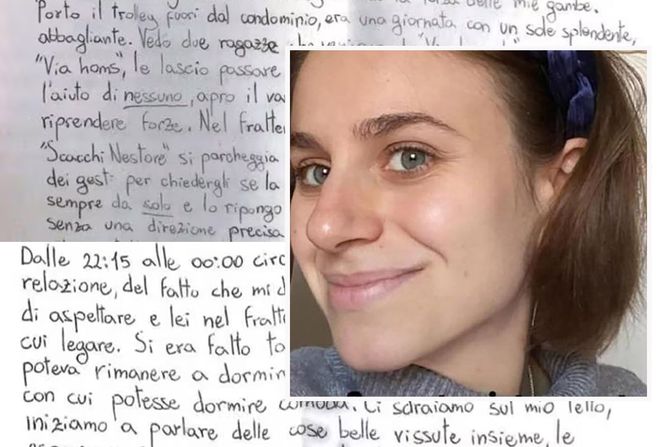 Porto il trolley fuori dal condominio, era una giornata con un sole splendente,
abbagliante. Vedo due ragazze
"Via homs", le lascio passare
l'aiuto di nessuno, apro il va
riprendere forze. Nel fratte
"Scacchi Nestore" si parcheggia
dei gesti per chiedergli se la
sempre da solo e lo ripongo
senza una direzione precisa
Dalle 22:15 alle 00:00 circ
relazione, del fatto che mi d
di aspettare e lei nel fratt
cui legare. Si era fatto to
poteva rimanere a dormir
con cui potesse dormire comoda. Ci sdraiamo sul mio letto,
iniziamo a parlare delle cose belle vissute insieme, le